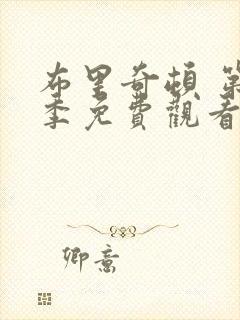 布里奇頓 第
季免費觀看
卿意